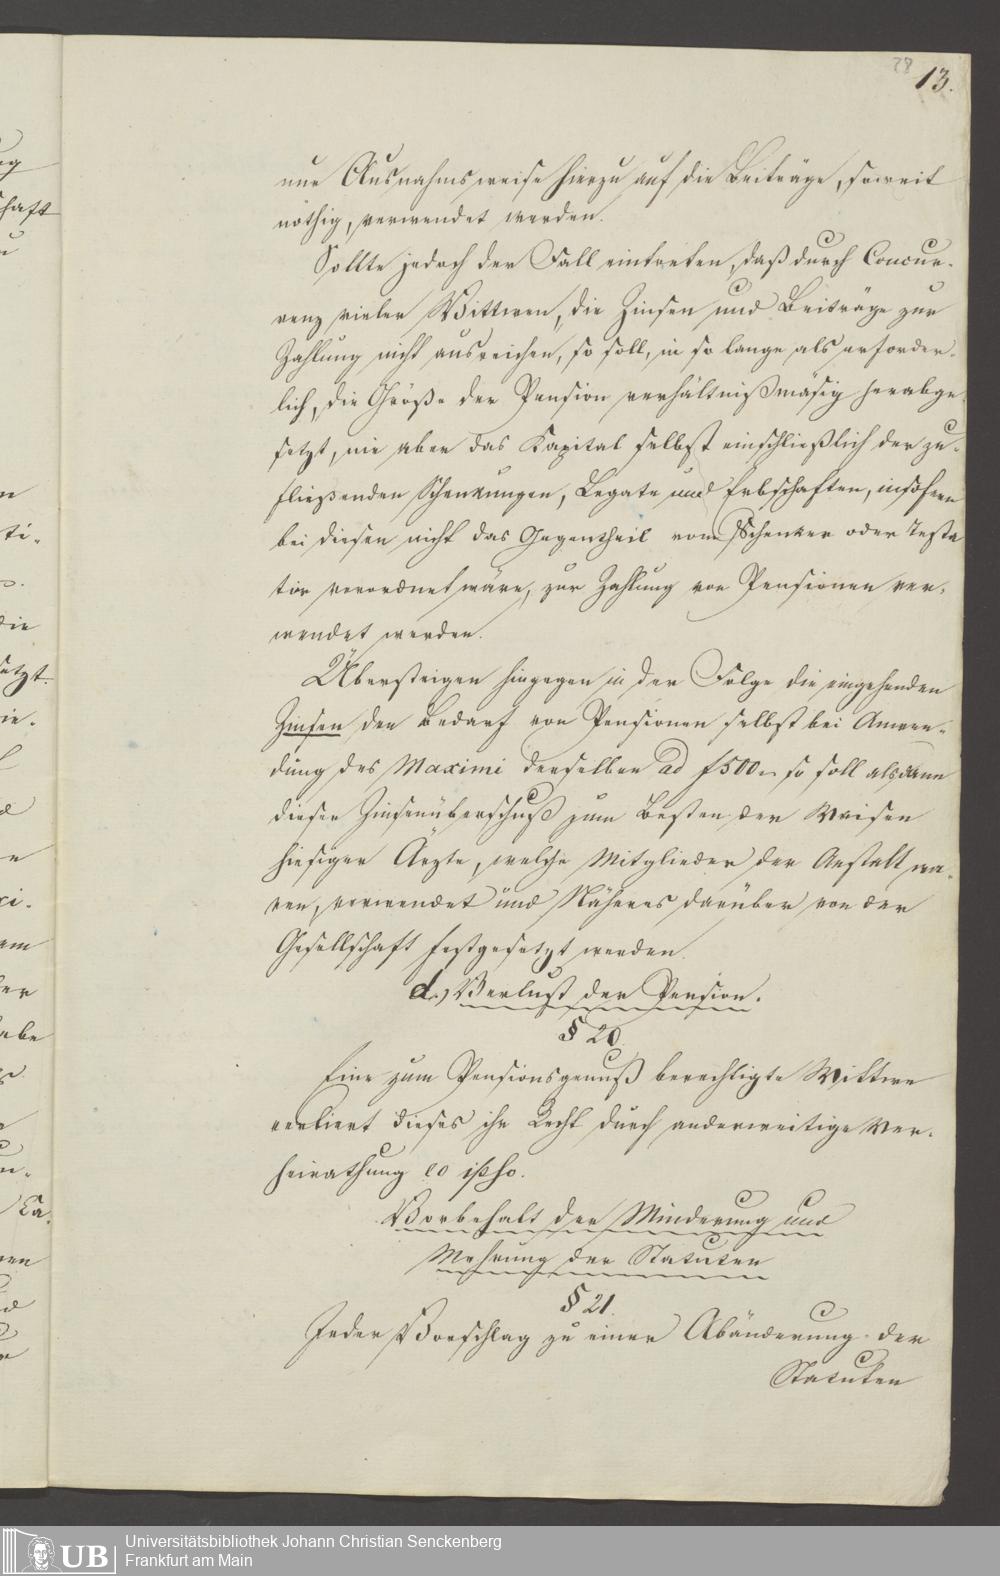 28
13.
nur Ausnahmsweise hierzu auf die Beiträge, soweit
nöthig, verwendet werden.
Sollte jedoch der Fall eintreten, daß durch Concur-
renz vieler Wittwen, die Zinsen und Beiträge zur
Zahlung nicht ausreichen, so soll, in so lange als erforder-
lich, die Größe der Pension verhältnißmäsig herabge-
setzt, nie aber das Kapital selbst einschließlich der zu-
fließenden Schenkungen, Legate und Erbschaften, insofern
bei diesen nicht das Gegentheil vom Schenker oder Testa
tor verordnet wäre, zur Zahlung von Pensionen ver-
wendet werden.
Übersteigen hingegen in der Folge die eingehenden
Zinsen den Bedarf von Pensionen selbst bei Anwen-
dung des Maximi derselben ad f 500 so soll alsdann
dieser Zinsenüberschuß zum Besten der Waisen
hiesiger Ärzte, welche Mitglieder der Anstalt wa-
ren, verwendet und Näheres darüber von der
Gesellschaft festgesetzt werden.
d.) Verlust der Pension.
§ 20.
Eine zum Pensionsgenuß berechtigte Wittwe
verliert dieses ihr Recht durch anderweitige Ver-
heirathung eo ipso.
Vorbehalt der Minderung und
Mehrung der Statuten
§ 21.
Jeder Vorschlag zu einer Abänderung der
Statuten
UB
Universitätsbibliothek Johann Christian Senckenberg
Frankfurt am Main